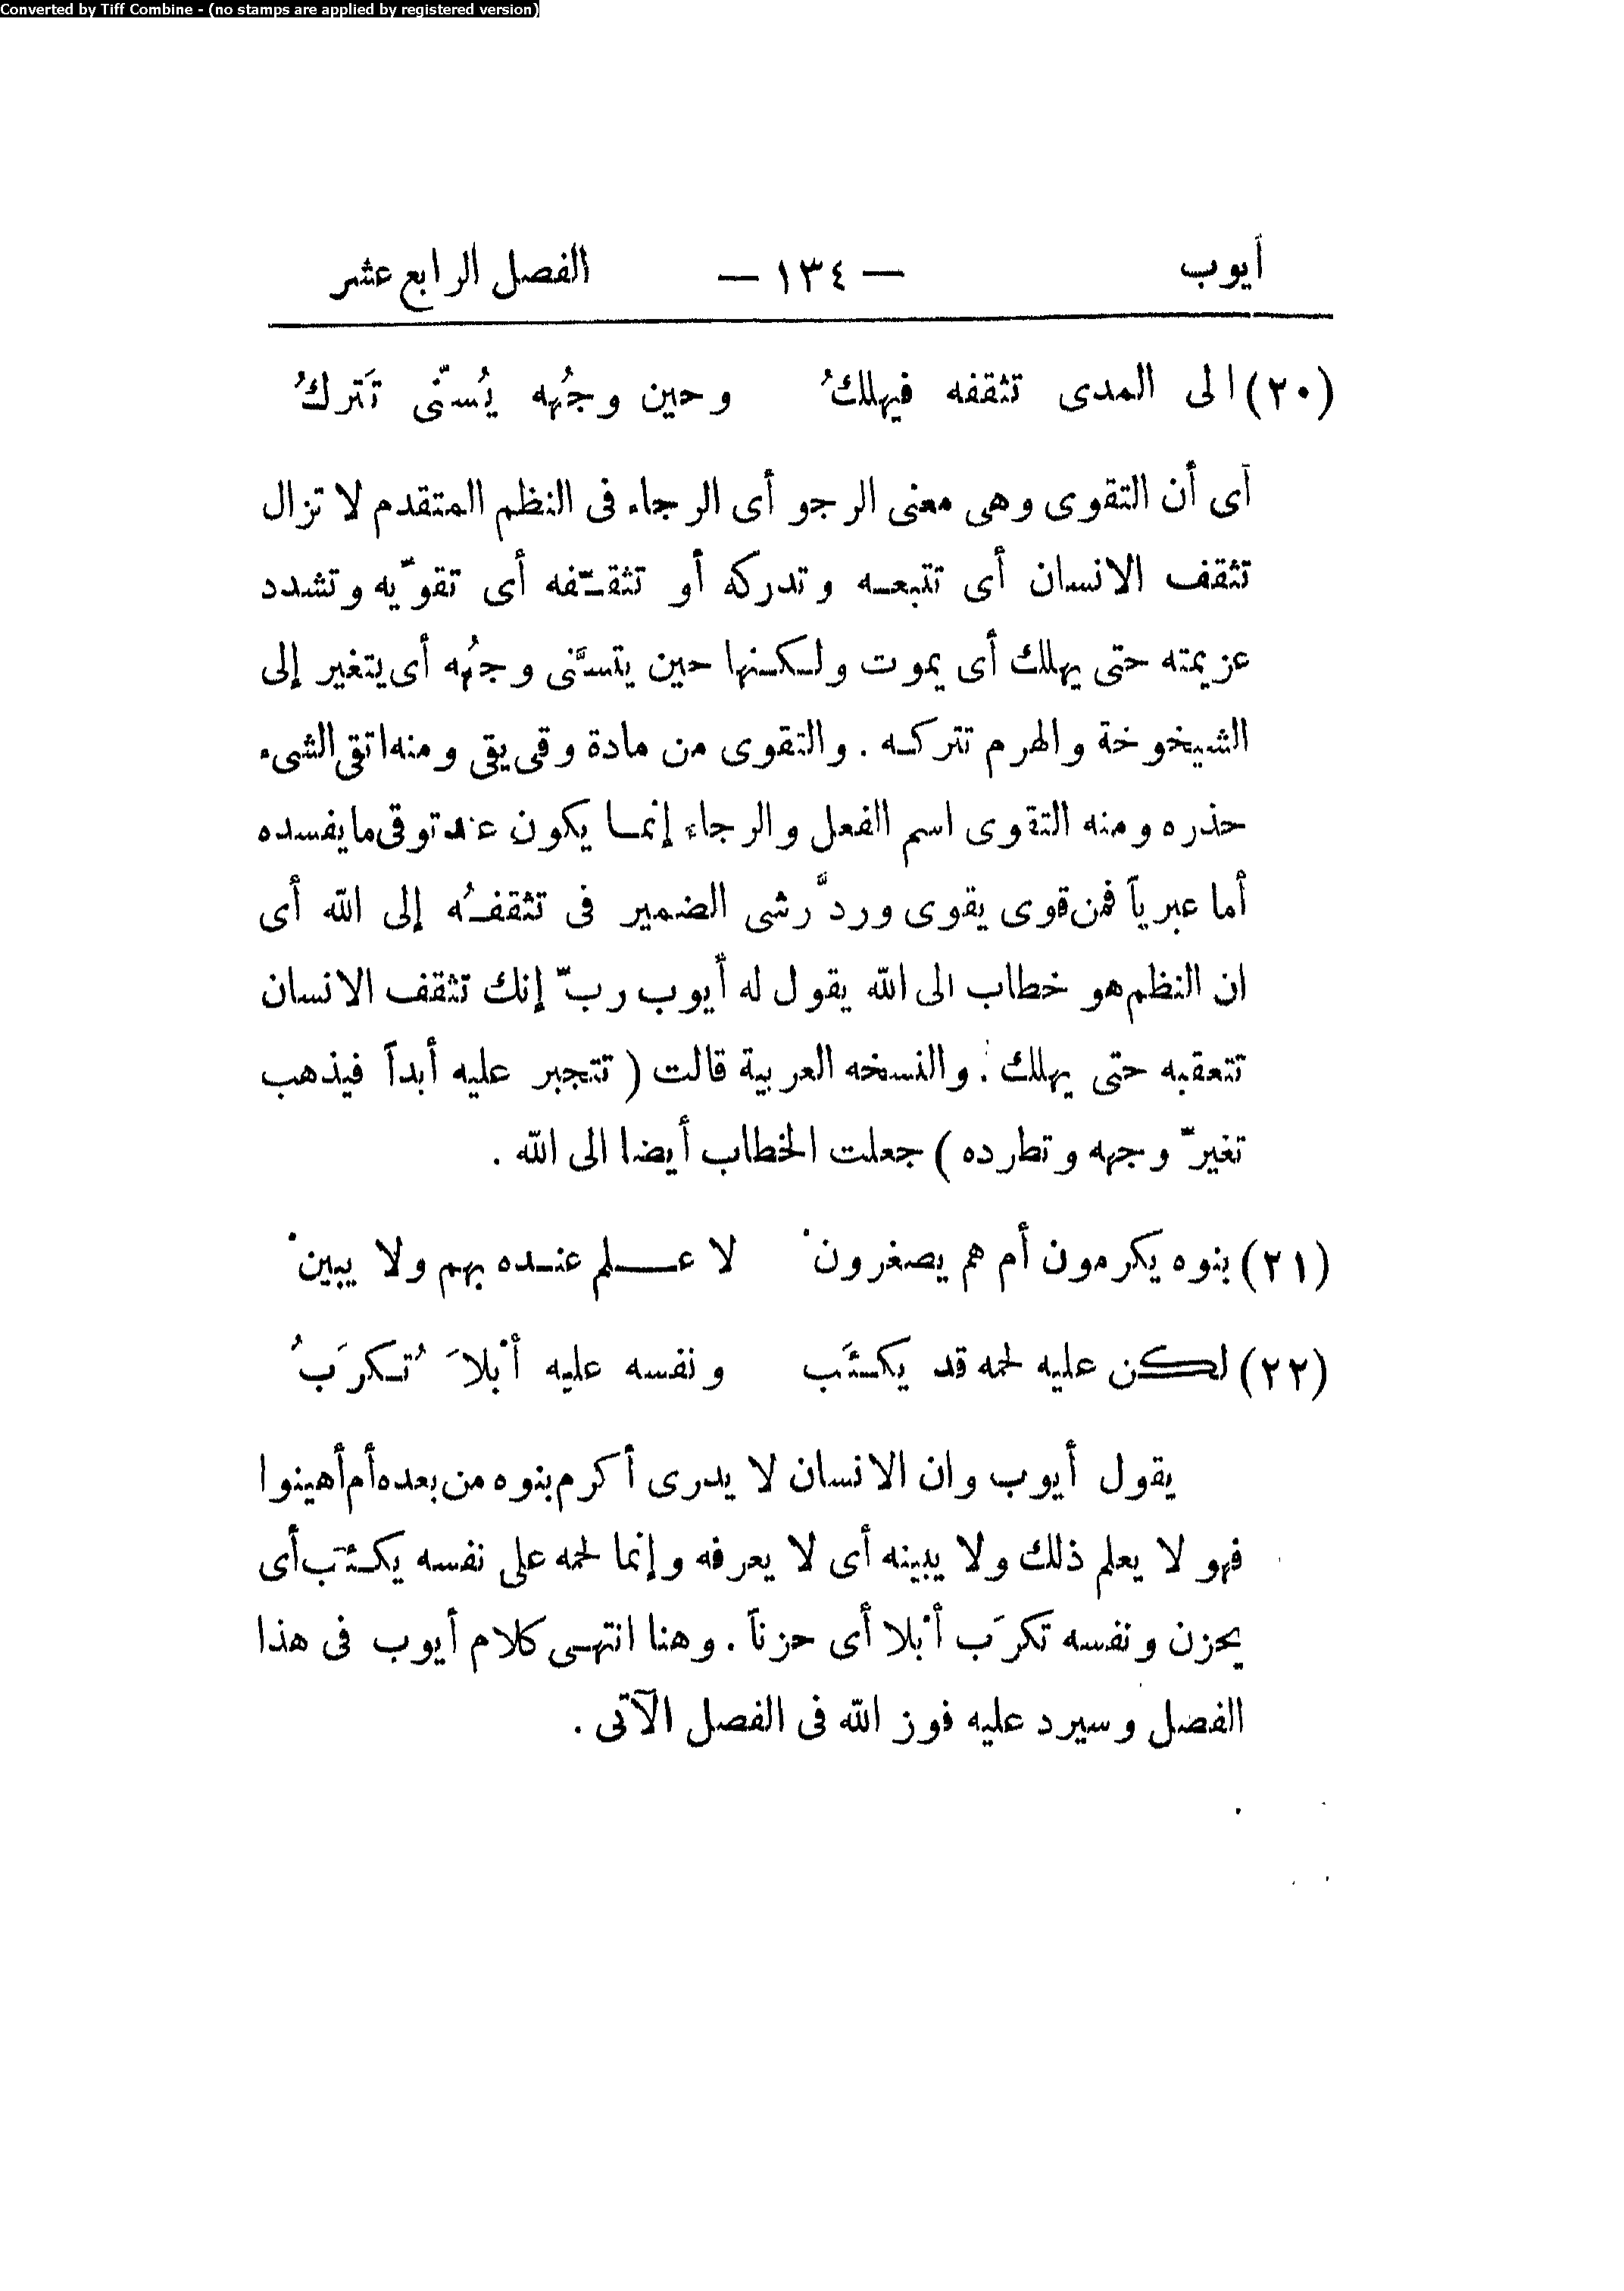 Converted by Tiff Combine - (no stamps are applied by registered version)
أيوب — ١٣٤ — الفصل الرابع عشر
(٢٠) الى المدى تثقفه فيهلكُ وحين وجُهه يُسنّى تَتركُ
أى أن التقوى وهى معنى الرجو أى الرجاء فى النظم المتقدم لا تزال
تثقف الانسان أى تتبعه وتدركه أو تثقّفه أى تقوّيه وتشدد
عزيمته حتى يهلك أى يموت ولكنها حين يتسنَّى وجهُه أى يتغير إلى
الشيخوخة والهرم تتركه . والتقوى من مادة وقى يقى ومنه اتقى الشىء
حذره ومنه التقوى اسم الفعل والرجاء إنما يكون عند توقى ما يفسده
أما عبرياً فمن قوى يقوى وردَّ رشى الضمير فى تثقفُه إلى الله أى
ان النظم هو خطاب الى الله يقول له أيوب ربّ إنك تثقف الانسان
تتعقبه حتى يهلك . والنسخه العربية قالت ( تتجبر عليه أبداً فيذهب
تغيرّ وجهه وتطرده ) جعلت الخطاب أيضا الى الله .
(٢١) بنوه يكرمون أم هم يصغرونْ لا علم عنده بهم ولا يبينْ
(٢٢) لكن عليه لحمه قد يكئَب ونفسه عليه أبْلاَ تُكرَبُ
يقول أيوب وان الانسان لا يدرى أكرم بنوه من بعده أم أهينوا
فهو لا يعلم ذلك ولا يبينه أى لا يعرفه وإنما لحمه على نفسه يكئب أى
يحزن ونفسه تكرَب أبْلا أى حزناً . وهنا انتهى كلام أيوب فى هذا
الفصل وسيرد عليه فوز الله فى الفصل الآتى .